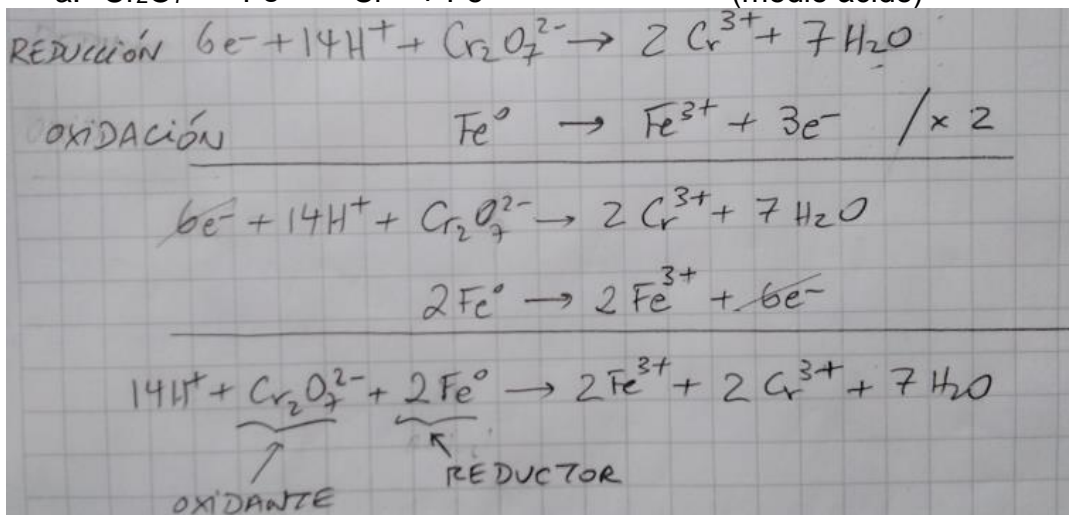 REDUCCIÓN 6e⁻ + 14H⁺ + Cr₂O₇²⁻ → 2 Cr³⁺ + 7 H₂O
OXIDACIÓN Fe⁰ → Fe³⁺ + 3e⁻ /x 2
6e⁻ + 14H⁺ + Cr₂O₇²⁻ → 2 Cr³⁺ + 7 H₂O
2Fe⁰ → 2 Fe³⁺ + 6e⁻
14H⁺ + Cr₂O₇²⁻ + 2Fe⁰ → 2Fe³⁺ + 2 Cr³⁺ + 7 H₂O
REDUCTOR
OXIDANTE